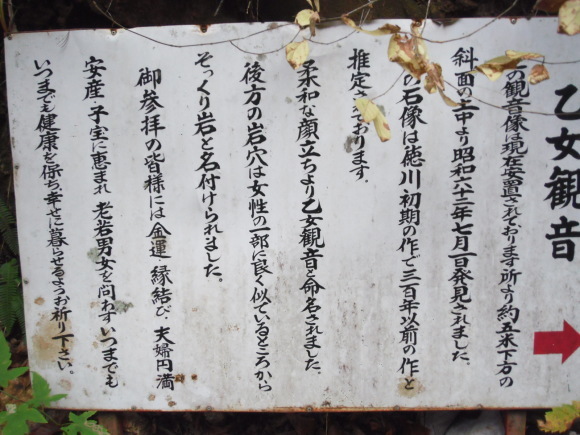 乙女観音
の観音像は現在安置されております所より約五米下方の
斜面の土中より昭和六十二年七月一日発見されました。
の石像は徳川初期の作で三百年以前の作と
推定されております。
柔和な顔立ちより乙女観音と命名されました。
後方の岩穴は女性の一部に良く似ているところから
そっくり岩と名付けられました。
御参拝の皆様には金運・縁結び・夫婦円満
安産・子宝に恵まれ老若男女を問わずいつまでも
いつまでも健康を保ち、幸せに暮らせるようお祈り下さい。